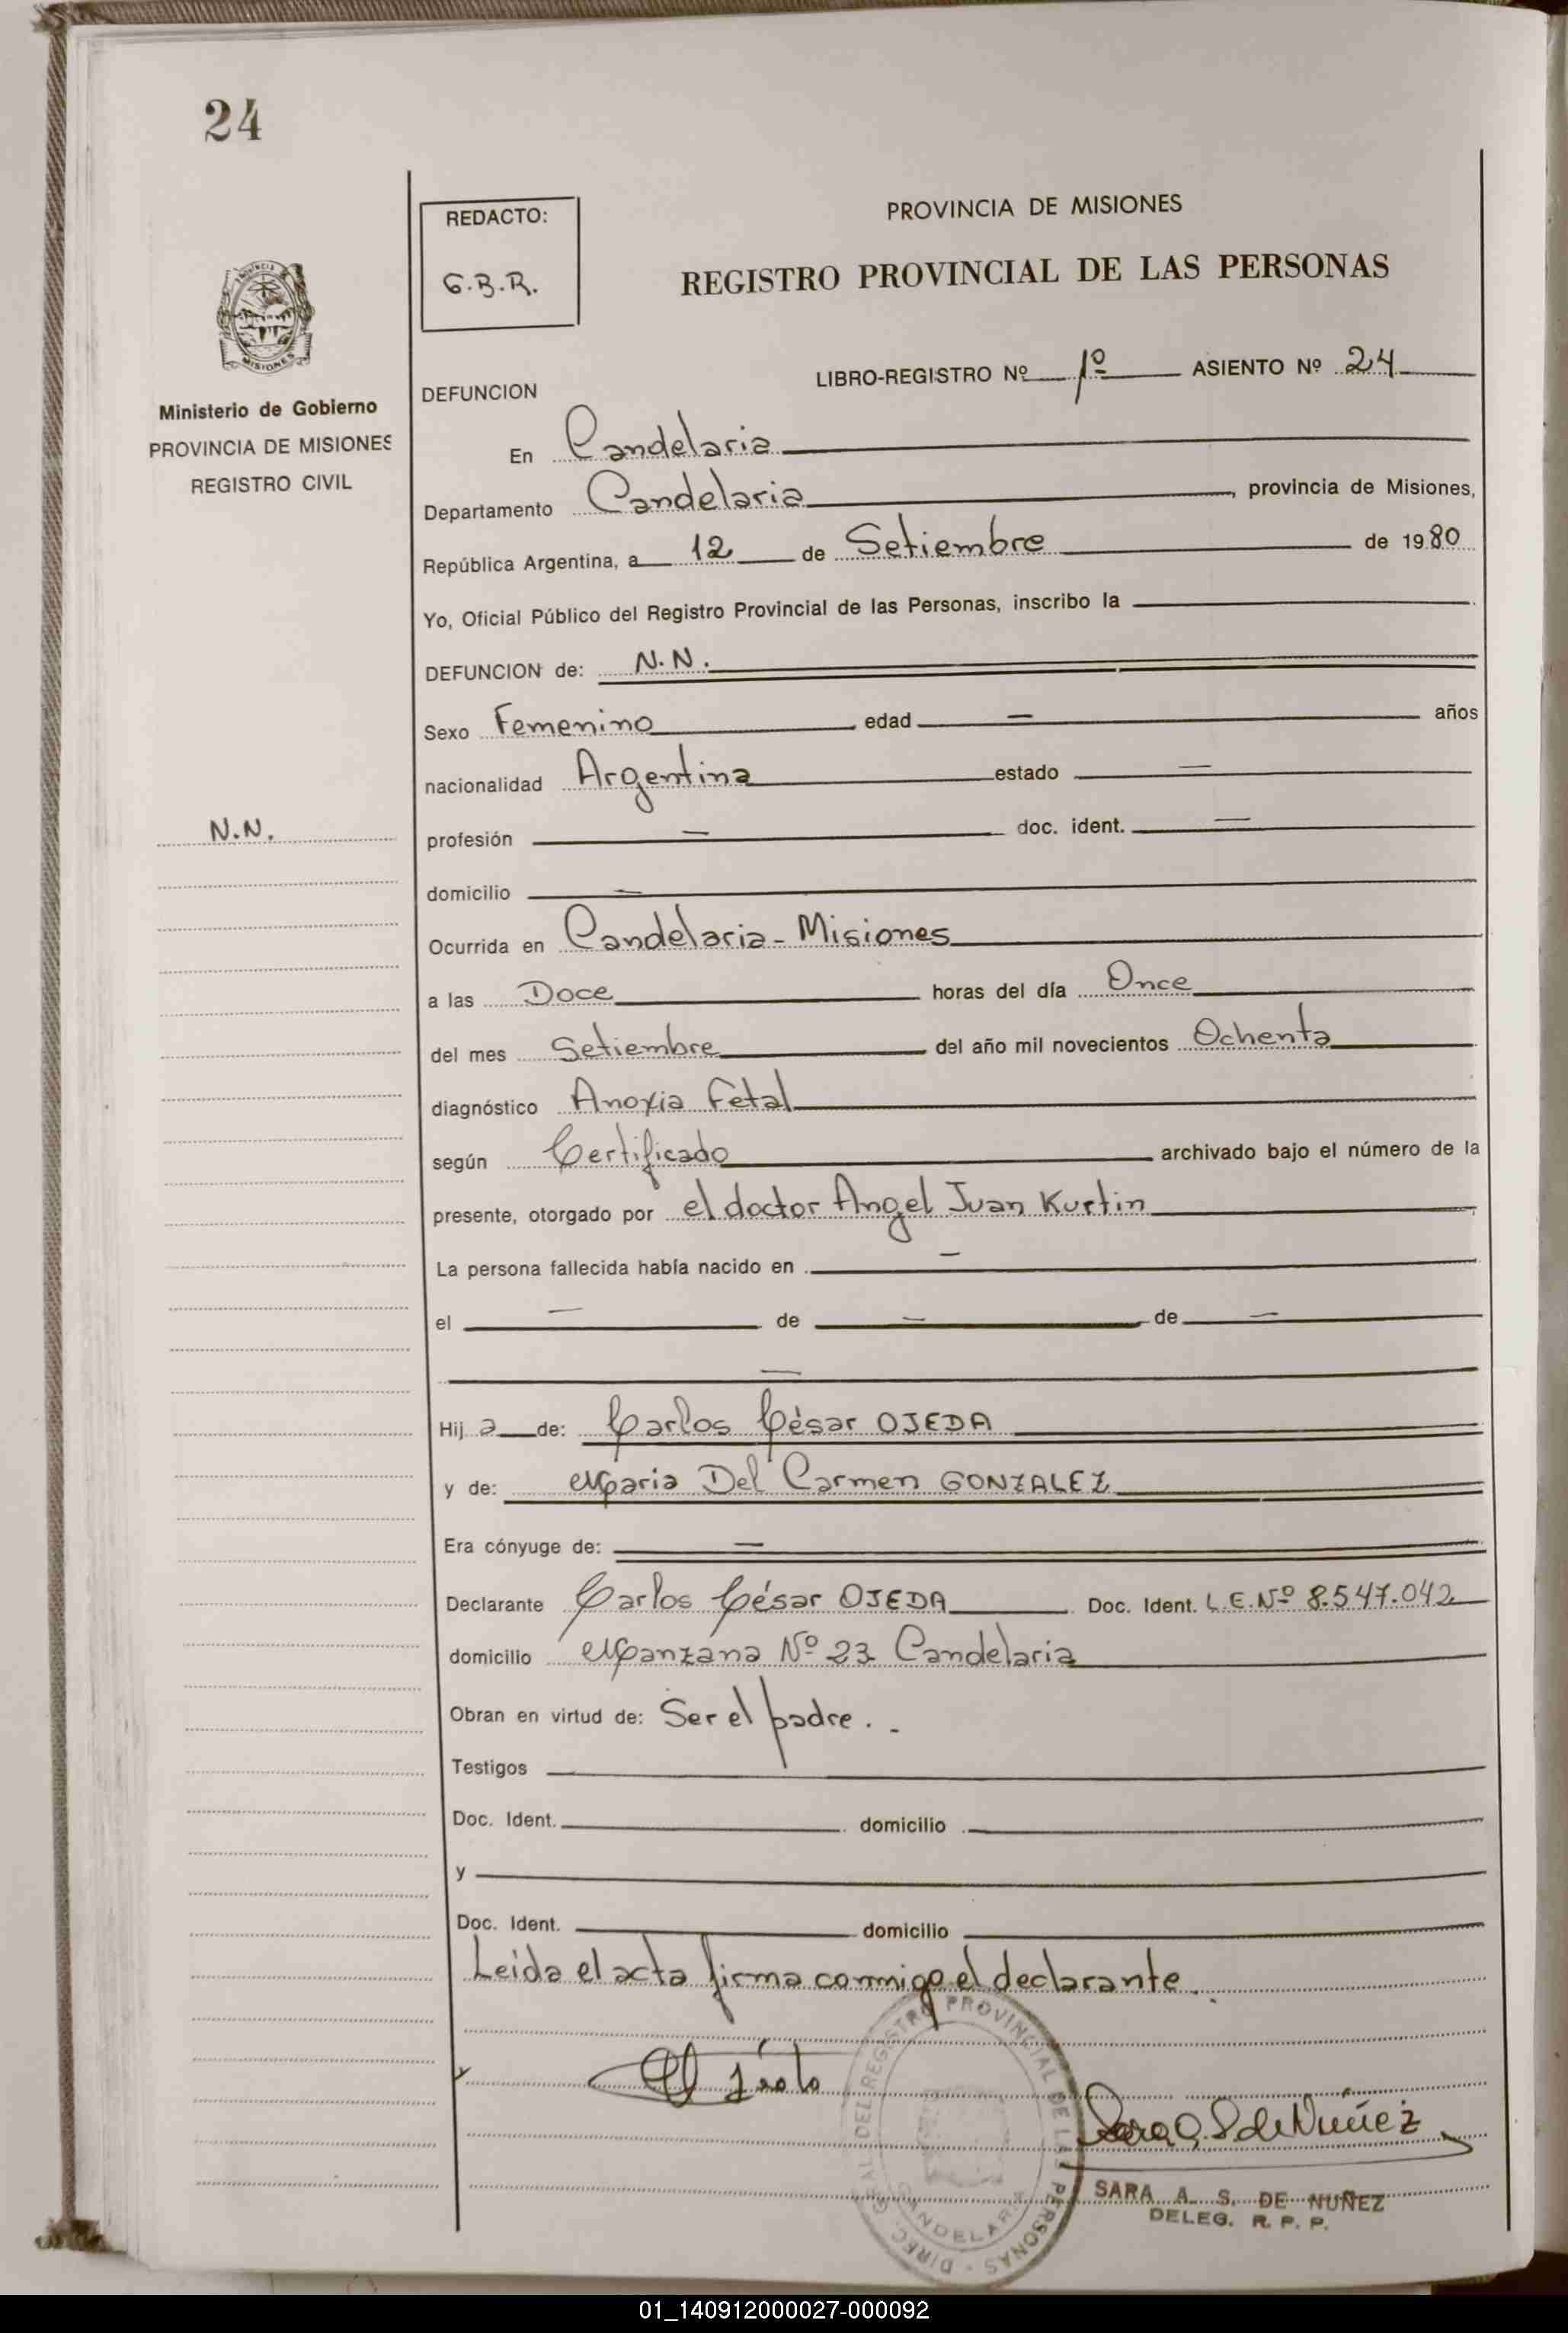 24
REDACTO:
G.B.R.
PROVINCIA DE MISIONES
REGISTRO PROVINCIAL DE LAS PERSONAS
PROVINCIA
MISIONES
Ministerio de Gobierno
PROVINCIA DE MISIONES
REGISTRO CIVIL
LIBRO-REGISTRO Nº 1º ASIENTO Nº 24
DEFUNCION
En Candelaria
Departamento Candelaria, provincia de Misiones,
República Argentina, a 12 de Setiembre de 1980
Yo, Oficial Público del Registro Provincial de las Personas, inscribo la
DEFUNCION de: N.N.
Sexo Femenino edad — años
nacionalidad Argentina estado —
N.N.
profesión — doc. ident. —
domicilio —
Ocurrida en Candelaria - Misiones
a las Doce horas del día Once
del mes Setiembre del año mil novecientos Ochenta
diagnóstico Anoxia Fetal
según Certificado archivado bajo el número de la
presente, otorgado por el doctor Angel Juan Kurtin
La persona fallecida había nacido en —
el — de — de —
—
Hij a de: Carlos César OJEDA
y de: Maria Del Carmen GONZALEZ
Era cónyuge de: —
Declarante Carlos César OJEDA Doc. Ident. L.E.Nº 8.547.042
domicilio Manzana Nº 23 Candelaria
Obran en virtud de: Ser el padre . -
Testigos
Doc. Ident. domicilio
y
Doc. Ident. domicilio
Leida el acta firma conmigo el declarante.
DIREC. GRAL DEL REGISTRO PROVINCIAL DE LAS PERSONAS -
CANDELARIA
Sara A. S. de Nuñez
SARA A. S. DE NUÑEZ
DELEG. R. P. P.
01_140912000027-000092